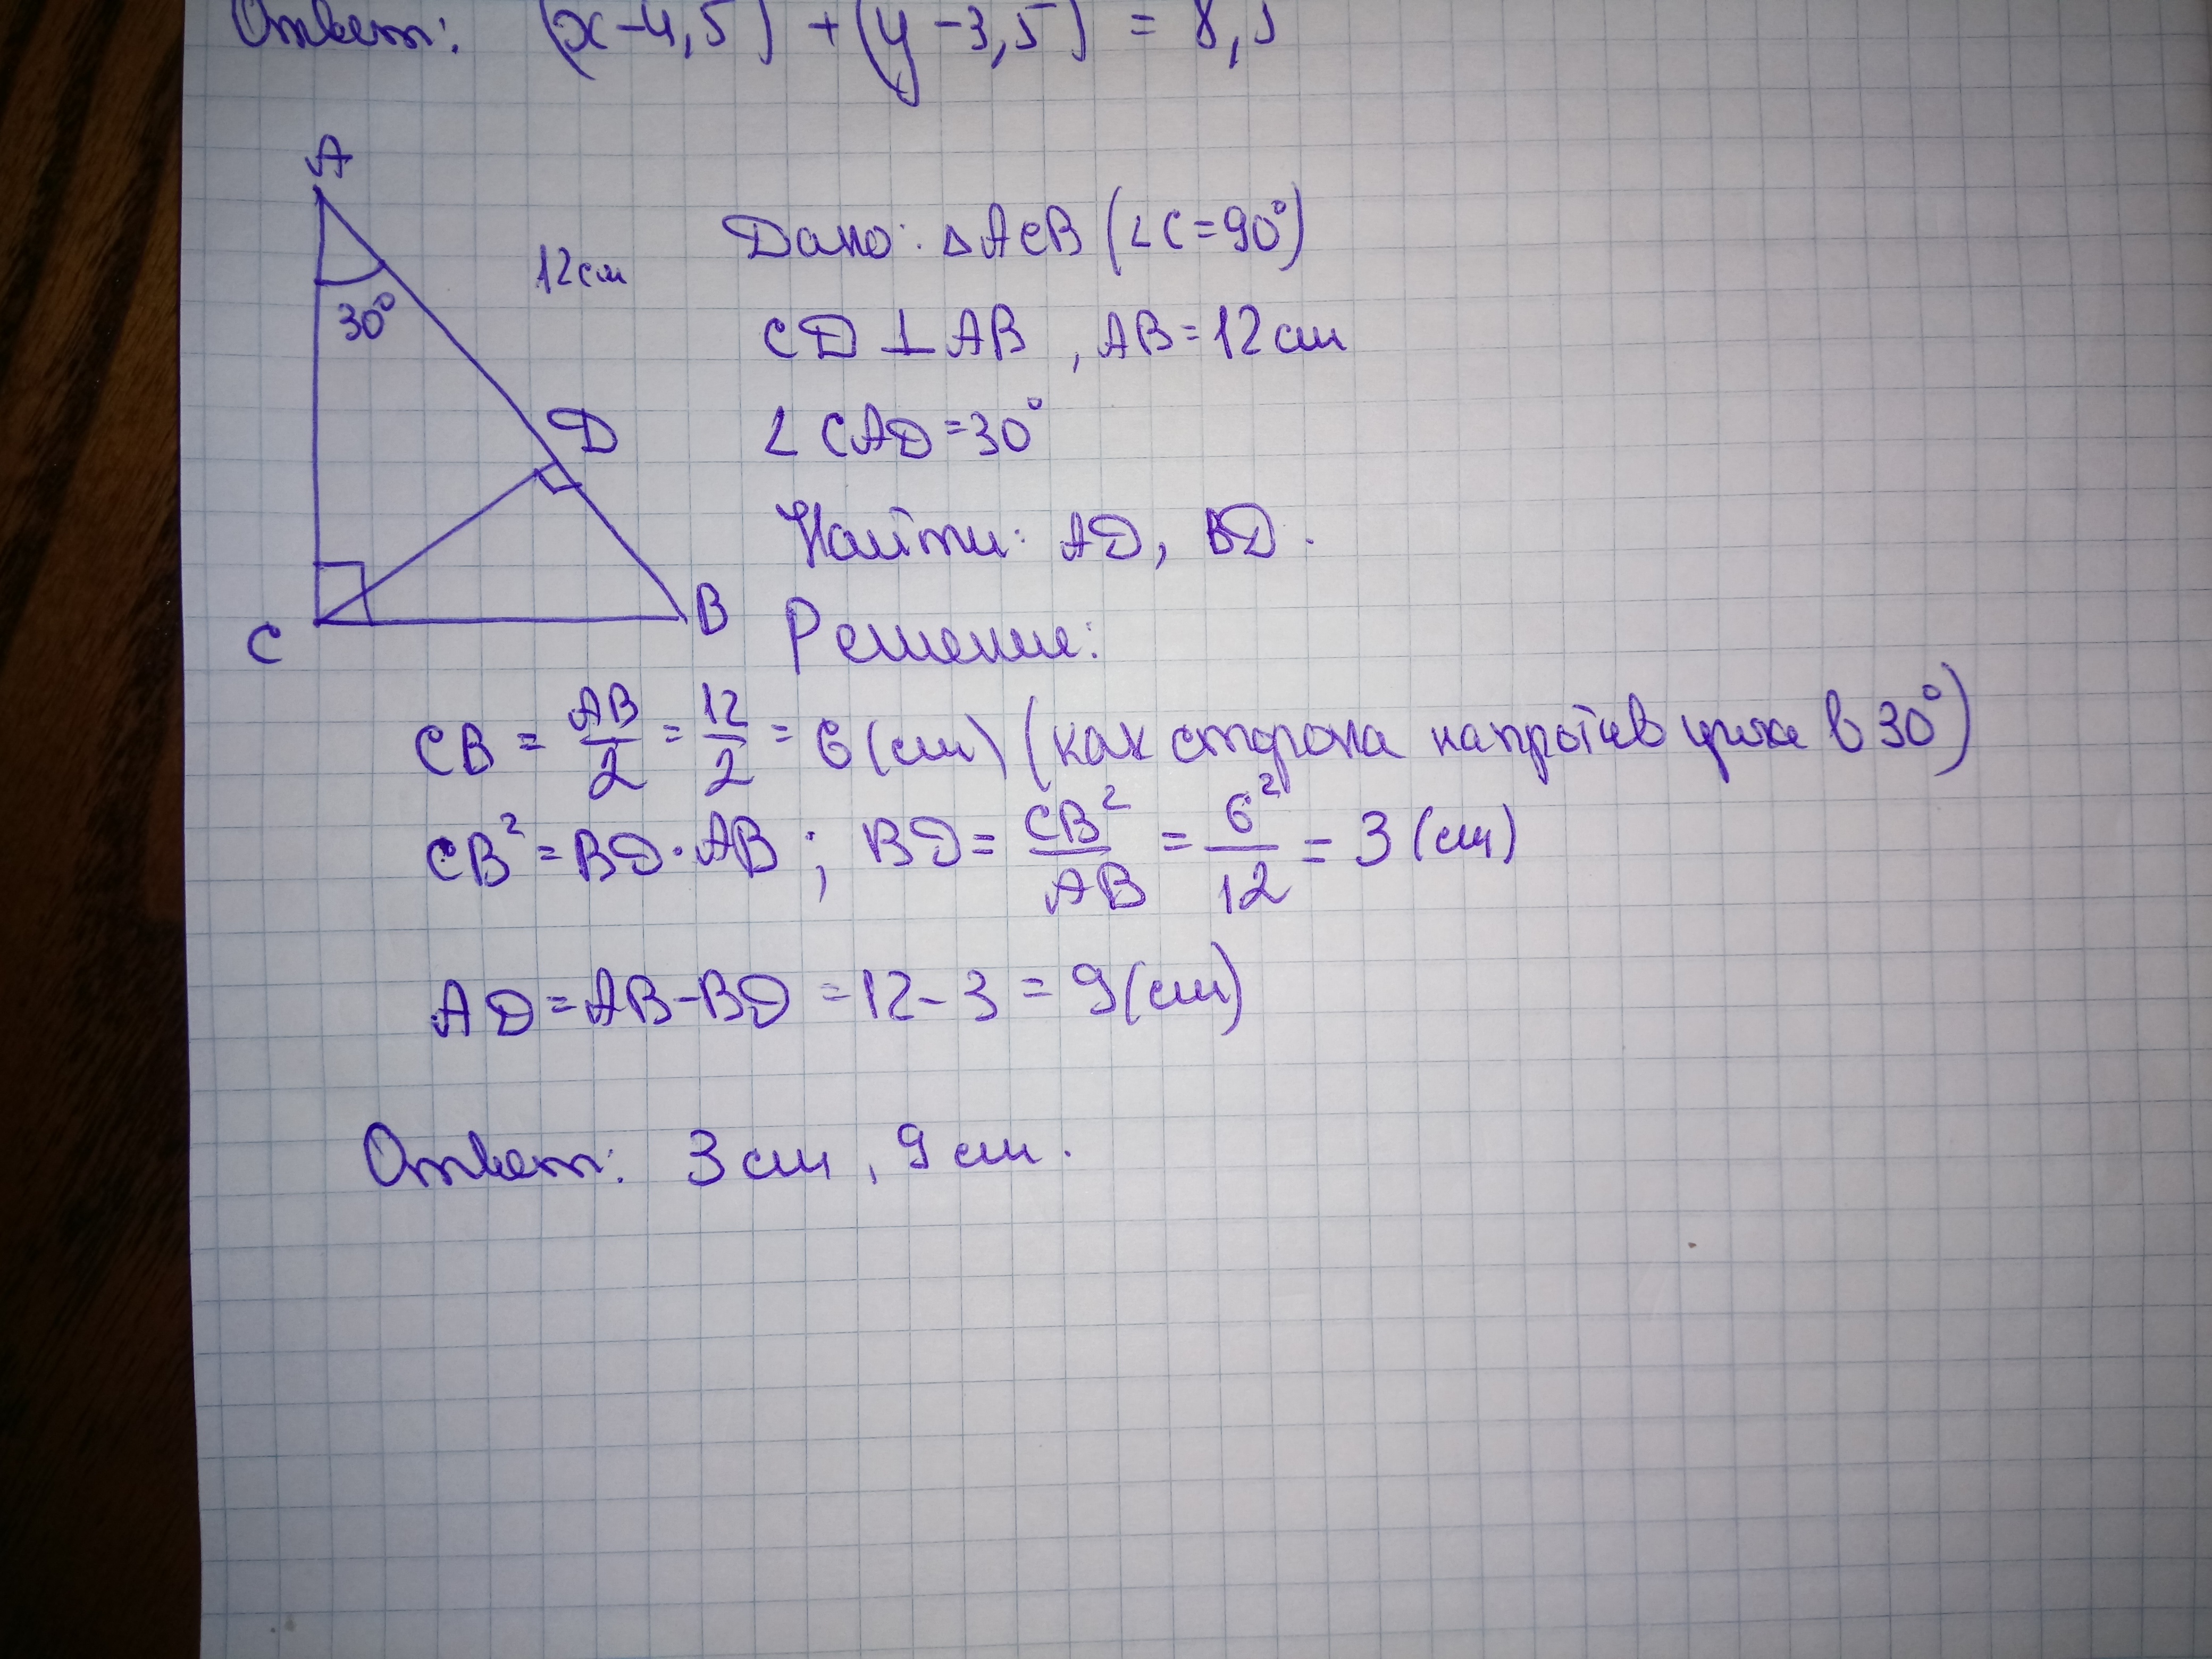 Ответ: (x-4,5) + (y-3,5) = 8,5
A
12 см
30°
D
C
B
Дано: △ACB (∠C=90°)
CD ⊥ AB, AB=12 см
∠CAD=30°
Найти: AD, BD.
Решение:
CB = AB/2 = 12/2 = 6 (см) (как сторона напротив угла в 30°)
CB² = BD · AB ; BD = CB²/AB = 6²/12 = 3 (см)
AD = AB - BD = 12 - 3 = 9 (см)
Ответ: 3 см, 9 см.